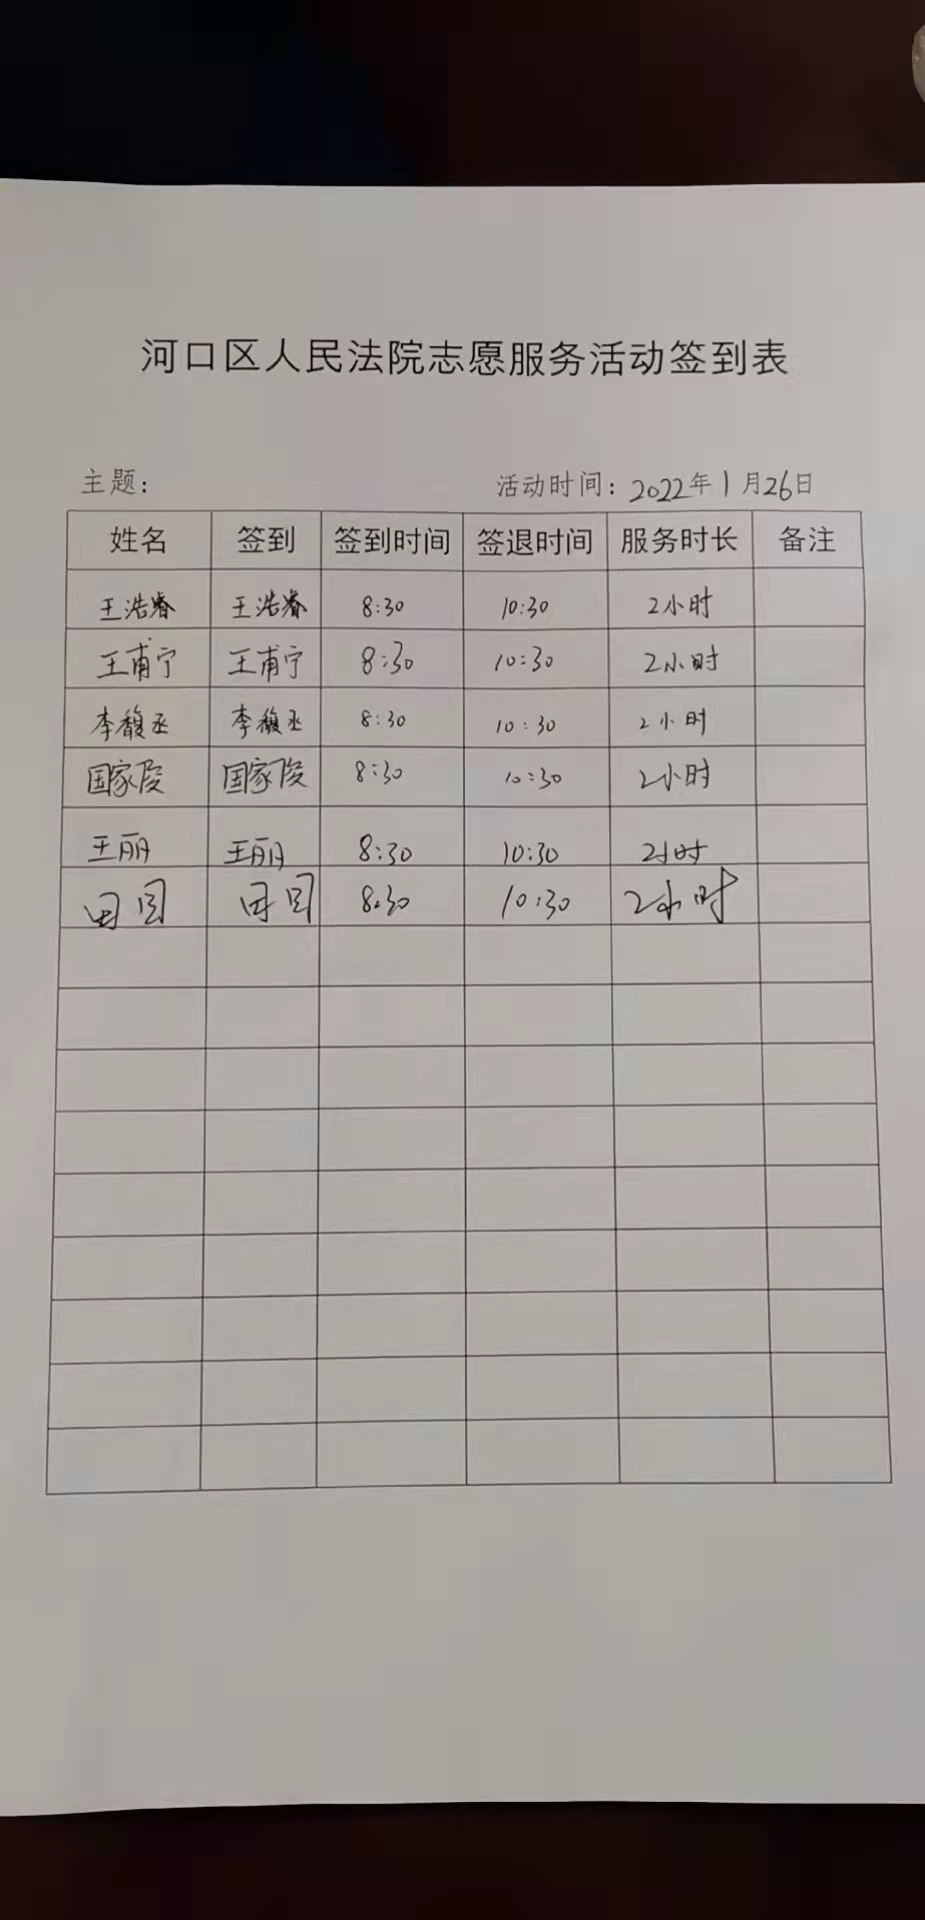 河口区人民法院志愿服务活动签到表
主题: 活动时间: 2022年1月26日
姓名 签到 签到时间 签退时间 服务时长 备注
王浩睿 王浩睿 8:30 10:30 2小时
王甫宁 王甫宁 8:30 10:30 2小时
李馥丞 李馥丞 8:30 10:30 2小时
国家俊 国家俊 8:30 10:30 2小时
王丽 王丽 8:30 10:30 2小时
田 田 8:30 10:30 2小时